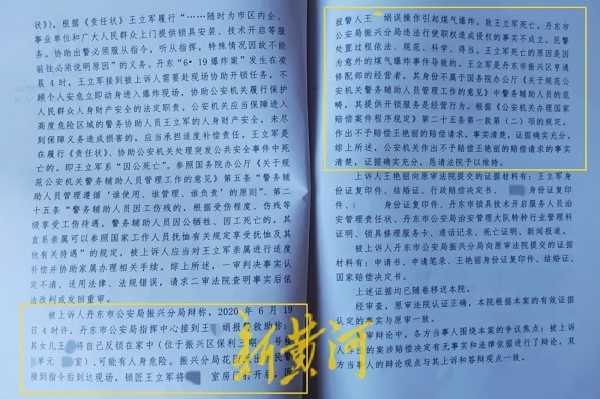 下)。根据《责任状》王立军履行“……随时为市区内企、
事业单位和广大人民群众上门提供锁具安装、技术开启等服
务。协助出警必须服从指令,听从指挥,特殊情况因故不能
前往必须说明原因”的义务。丹东“6·19爆炸案”发生在凌
晨4时,王立军接到被上诉人需要赴现场协助开锁任务,不
顾个人安危立即动身进入爆炸现场,协助公安机关履行保护
人民群众人身财产安全的法定职责。公安机关应当保障进入
高度危险区域的警务协助人员王立军的人身财产安全,未尽
到保障义务造成损害的,应当承担适度补偿责任。王立军是
在履行《责任状》、协助公安机关处理突发公共安全事件中死
亡的,即王立军系“因公死亡”。参照国务院办公厅《关于规
范公安机关警务辅助人员管理工作的意见》第五条“警务辅
助人员管理遵循‘谁使用、谁管理、谁负责’的原则”、第二
十五条“警务辅助人员因工伤残的,根据受伤程度、伤残等
级享受工伤待遇,警务辅助人员因公牺牲、因工死亡的,其
直系亲属可以参照国家工作人员抚恤有关规定享受抚恤及其
他有关待遇”的规定,被上诉人应当对王立军亲属进行适度
补偿并协助家属办理相关手续。综上所述,一审判决事实认
定不清,适用法律、法规错误,请求二审法院查明事实后依
法改判或发回重审。
被上诉人丹东市公安局振兴分局辩称,2020年6月19
日4时许,丹东市公安局指挥中心接到王 娟报警救助称:
其女儿王 将自己反锁在家中(位于振兴区保利三期
单元 室),可能有人身危险。振兴分局花园
接到指令后到达现场,锁匠王立军将 室房门
报警人王 娟误操作引起煤气爆炸,致王立军死亡。丹东市
公安局振兴分局违法行使职权造成侵权的事实不成立。民警
处置过程依法、规范、科学、得当。王立军死亡的原因是因
为意外的煤气爆炸事件导致的。王立军是丹东市振兴区亨通
修配部的经营者,其身份不属于国务院办公厅《关于规范公
安机关警务辅助人员管理工作的意见》中警务辅助人员的范
畴,其提供开锁服务是经营行为。根据《公安机关办理国家
赔偿案件程序规定》第二十五条第一款第(二)项的规定,
作出不予赔偿王艳丽的赔偿请求,事实清楚,证据确实充分。
综上所述,公安机关作出不予赔偿王艳丽的赔偿请求的事实
清楚,证据确实充分,恳请法院予以维持。
上诉人王艳丽向原审法院提交的证据材料有:王立军身
份证复印件、结婚证、行政赔偿决定书、 身份证复印
件、 身份证复印件、丹东市锁具技术开启服务人员治
安管理责任状、丹东市公安局治安管理大队特种行业管理科
证明、锁具修理服务卡、通话记录、死亡证明、新闻报道。
被上诉人丹东市公安局振兴分局向原审法院提交的证据
材料有:申请书、申请笔录、王艳丽身份证复印件、结婚证、
国家赔偿决定书。
上述证据均已随卷移送本院。
经审查,原审法院认证正确,本院根据本案的有效证据
认定的事实与原审一致。
审辩论中,各方当事人围绕本案的争议焦点:被上诉
人作出的案涉赔偿决定有无事实和法律依据进行了辩论,双
方当事人的辩论观点与其上诉和答辩观点一致。
新黄河